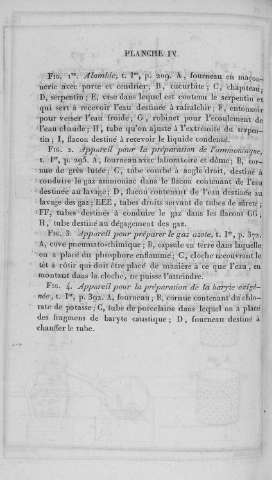 PLANCHE IV.
FIG. 1re. Alambic, t. Ier, p. 209. A, fourneau en maçon-
nerie avec porte et cendrier; B, cucurbite; C, chapiteau;
D, serpentin; E, vase dans lequel est contenu le serpentin et
qui sert à recevoir l'eau destinée à rafraîchir; F, entonnoir
pour verser l'eau froide; G, robinet pour l'écoulement de
l'eau chaude; H, tube qu'on ajuste à l'extrémité du serpen-
tin; I, flacon destiné à recevoir le liquide condensé.
FIG. 2. Appareil pour la préparation de l'ammoniaque,
t. Ier, p. 295. A, fourneau avec laboratoire et dôme; B, cor-
nue de grès lutée; C, tube courbé à angle droit, destiné à
conduire le gaz ammoniac dans le flacon contenant de l'eau
destinée au lavage; D, flacon contenant de l'eau destinée au
lavage des gaz; EEE, tubes droits servant de tubes de sûreté;
FF, tubes destinés à conduire le gaz dans les flacons GG;
H, tube destiné au dégagement des gaz.
FIG. 3. Appareil pour préparer le gaz azote, t. Ier, p. 372.
A, cuve pneumato-chimique; B, capsule en terre dans laquelle
on a placé du phosphore enflammé; C, cloche recouvrant le
têt à rôtir qui doit être placé de manière à ce que l'eau, en
montant dans la cloche, ne puisse l'atteindre.
FIG. 4. Appareil pour la préparation de la baryte oxigé-
née, t. Ier, p. 392. A, fourneau; B, cornue contenant du chlo-
rate de potasse; C, tube de porcelaine dans lequel on a placé
des fragmens de baryte caustique; D, fourneau destiné à
chauffer le tube.